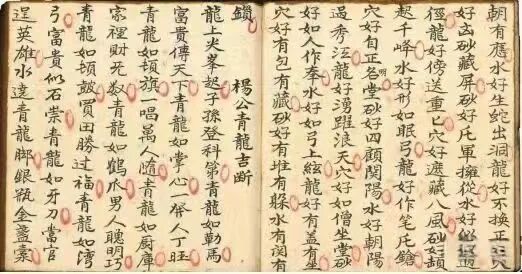 朝有應水好生蛇出洞龍好不換正
好砂藏屏砂好氏軍擁從水好似
徑龍好傍送重匕穴好遮藏八風砂
起千峰水好形如眠弓龍好作笔氏鎗
穴好自正名堂砂好四顧関陽水好朝陽
過秀江龍好湧躍浪天穴好如僧坐堂砂
好如人作奉水好如弓上絃龍好有盖有坐
穴好有包有藏砂好有堆有躲水好有関有
鎖 楊公青龍吉断
龍上尖峯起子孫登科第青龍如勒馬
富貴傳天下青龍如掌心一發人丁旺
青龍如頓旗一唱萬人隨青龍如厨庫
家裡財死青龍如鶴爪男人聰明巧
青龍如頓皷買田勝过福青龍如湾
弓富貴似石崇青龍如牙刀當官
逞英雄水遶青龍脚銀瓶金盞案